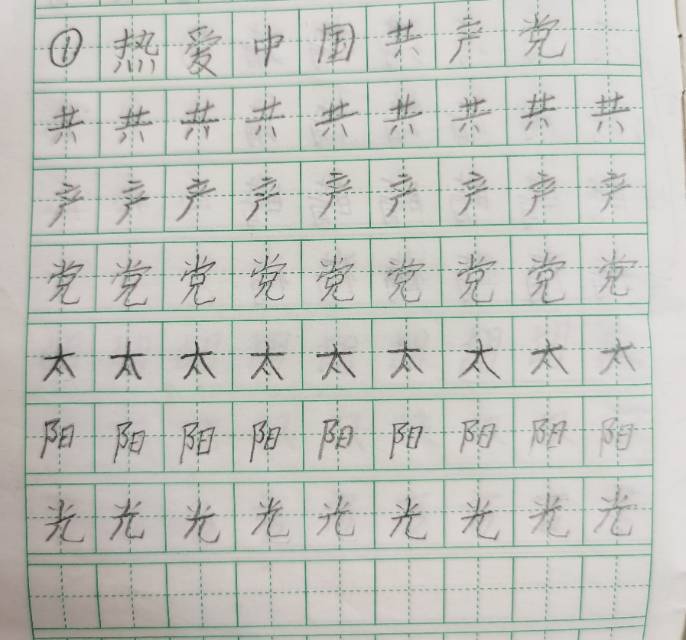 ①热爱中国共产党
共共共共共共共共共
产产产产产产产产产
党党党党党党党党党
太太太太太太太太太
阳阳阳阳阳阳阳阳阳
光光光光光光光光光